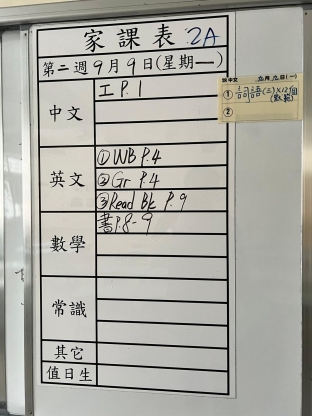 家課表 2A
第二週9月9日(星期一)
中文
工 P.1
英文
① WB P.4
② Gr P.4
③ Read Bk P.9
數學
書P.8-9
常識
其它
值日生
① 詞語(三)×12個
②